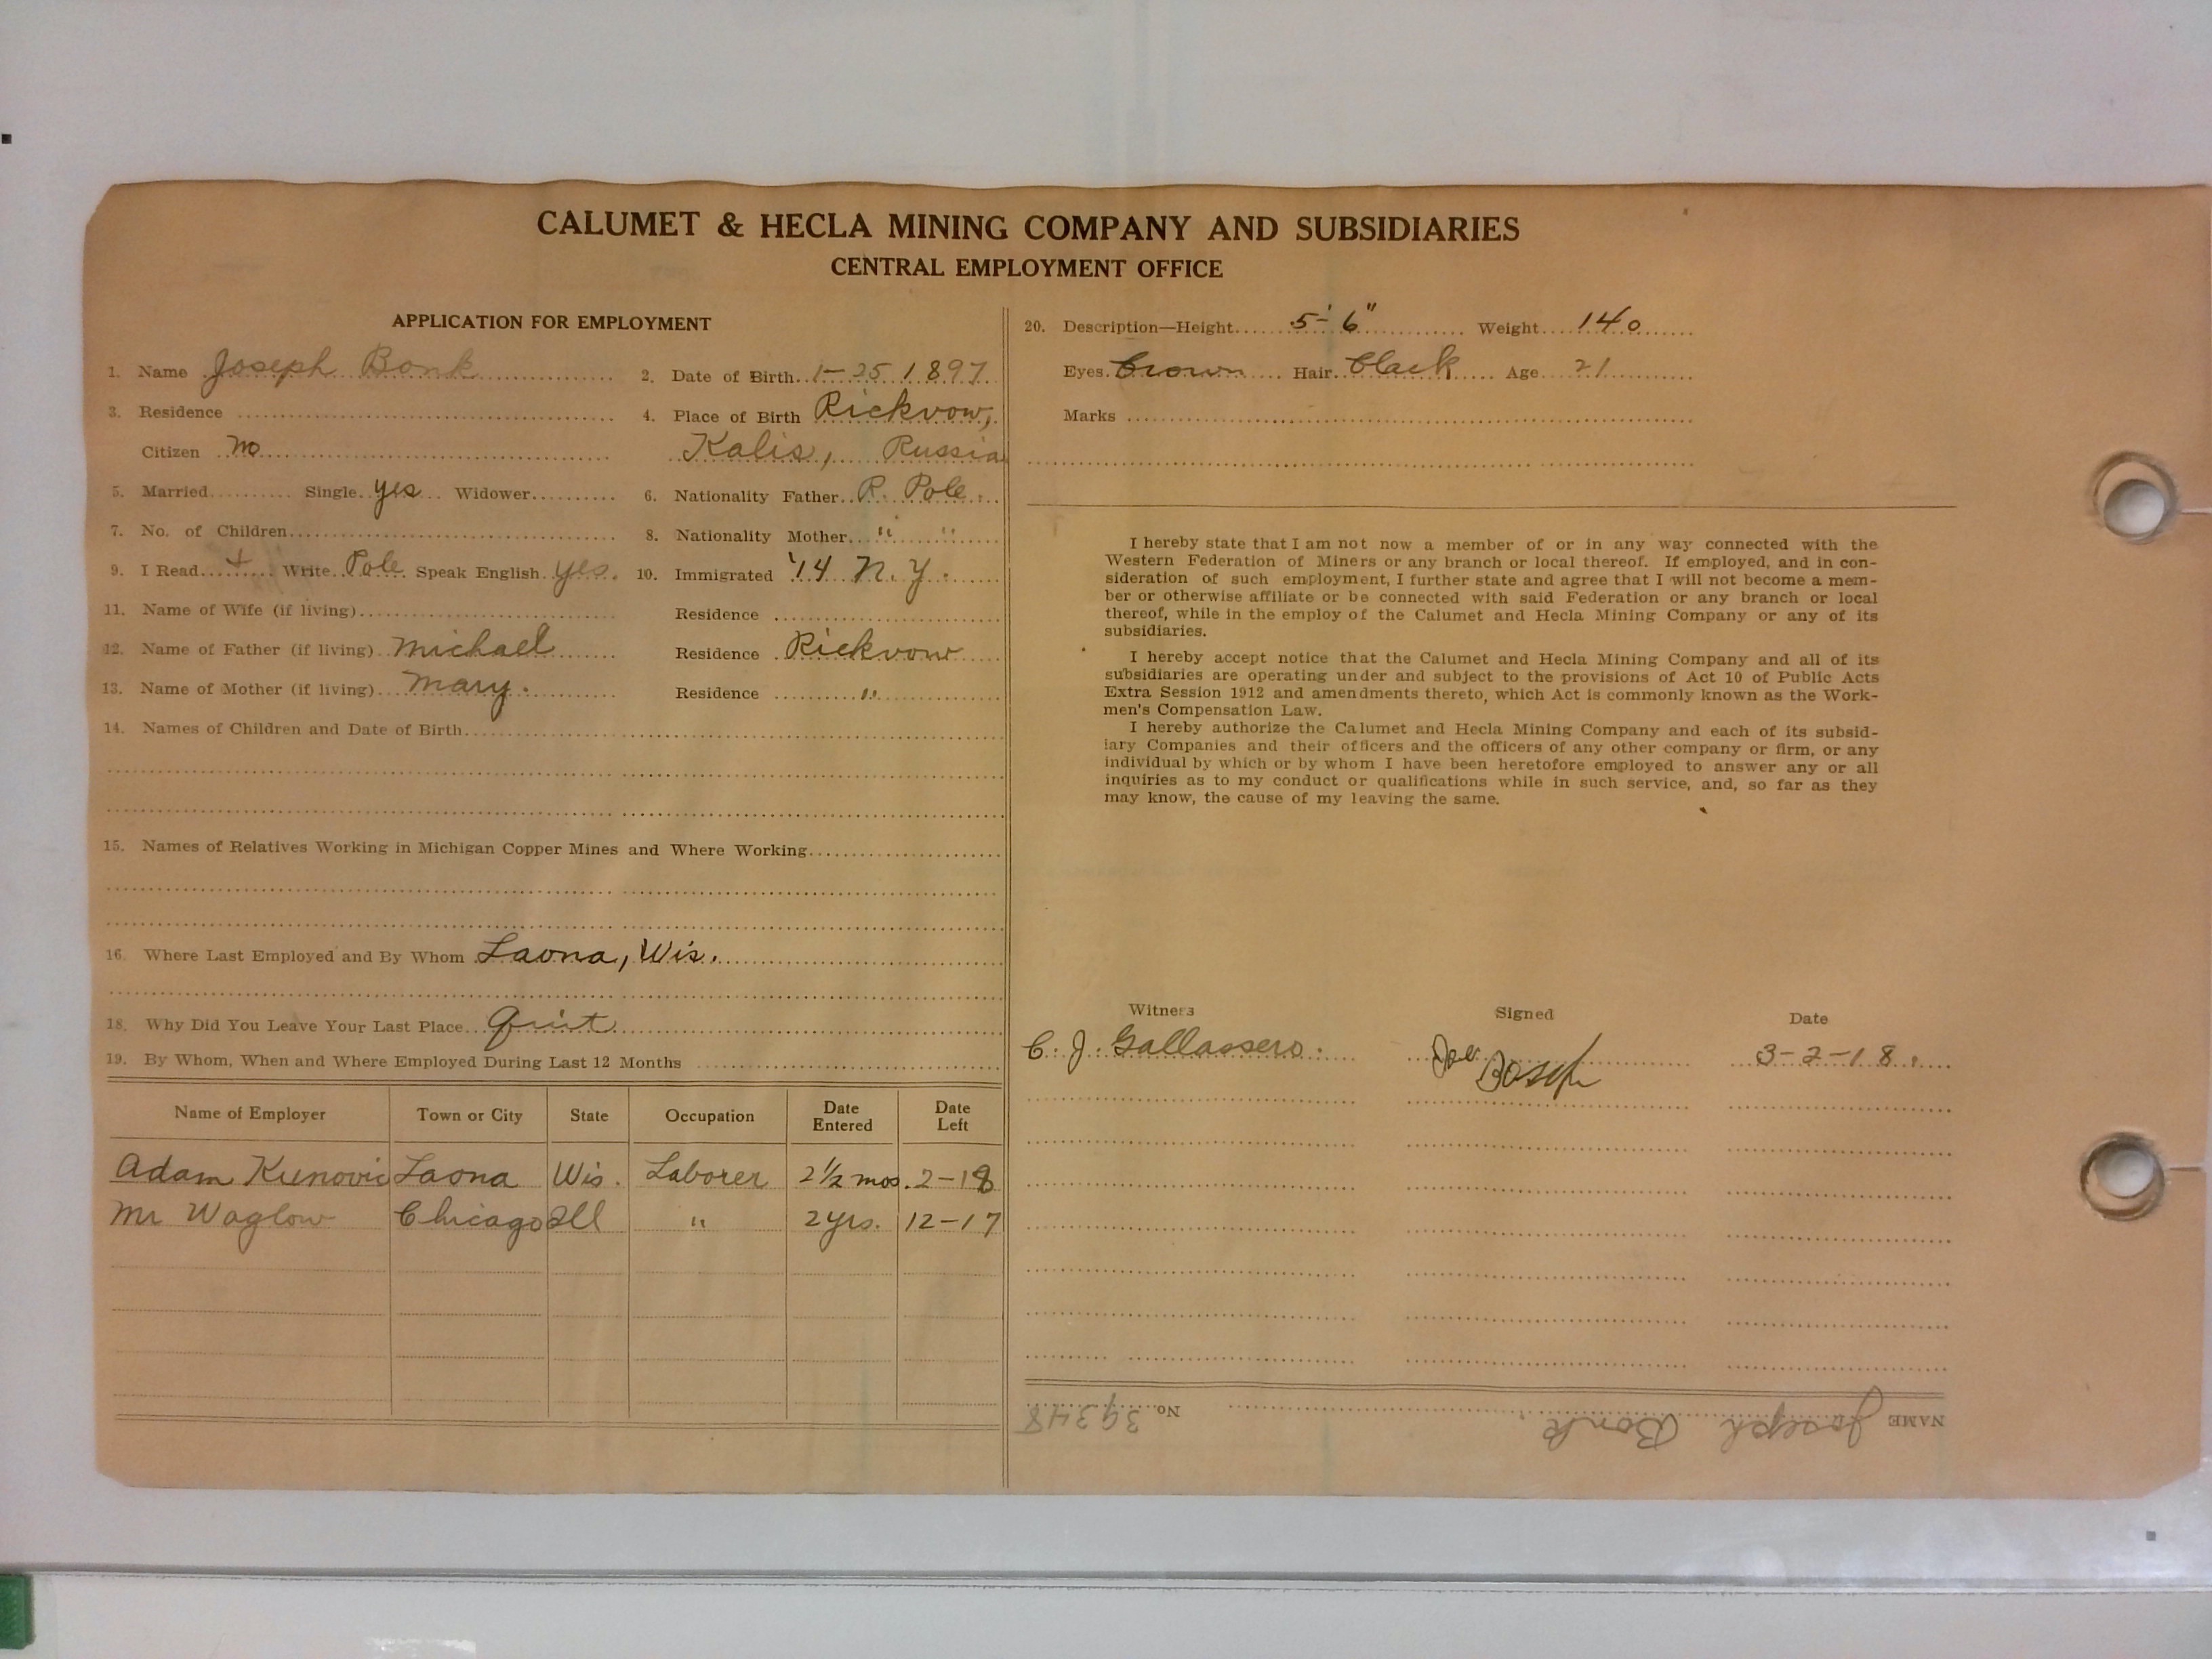 CALUMET & HECLA MINING COMPANY AND SUBSIDIARIES
CENTRAL EMPLOYMENT OFFICE
APPLICATION FOR EMPLOYMENT
1. Name Joseph Bonk
2. Date of Birth 1-25 1897
3. Residence
4. Place of Birth Rickvow,
Citizen no
Kalis, Russia
5. Married Single yes Widower
6. Nationality Father R. Pole.
7. No. of Children
8. Nationality Mother " "
9. I Read + Write Pole Speak English yes.
10. Immigrated '14 N.Y.
11. Name of Wife (if living)
Residence
12. Name of Father (if living) Michael
Residence Rickvow
13. Name of Mother (if living) Mary.
Residence "
14. Names of Children and Date of Birth
15. Names of Relatives Working in Michigan Copper Mines and Where Working
16. Where Last Employed and By Whom Laona, Wis.
18. Why Did You Leave Your Last Place Quit
19. By Whom, When and Where Employed During Last 12 Months
Name of Employer Town or City State Occupation Date Entered Date Left
Adam Kunovic Laona Wis. Laborer 2 1/2 mos. 2-18
Mr Waglow Chicago Ill " 2 yrs. 12-17
20. Description—Height 5'-6" Weight 140
Eyes brown Hair black Age 21
Marks
I hereby state that I am not now a member of or in any way connected with the
Western Federation of Miners or any branch or local thereof. If employed, and in con-
sideration of such employment, I further state and agree that I will not become a mem-
ber or otherwise affiliate or be connected with said Federation or any branch or local
thereof, while in the employ of the Calumet and Hecla Mining Company or any of its
subsidiaries.
I hereby accept notice that the Calumet and Hecla Mining Company and all of its
subsidiaries are operating under and subject to the provisions of Act 10 of Public Acts
Extra Session 1912 and amendments thereto, which Act is commonly known as the Work-
men's Compensation Law.
I hereby authorize the Calumet and Hecla Mining Company and each of its subsid-
iary Companies and their officers and the officers of any other company or firm, or any
individual by which or by whom I have been heretofore employed to answer any or all
inquiries as to my conduct or qualifications while in such service, and, so far as they
may know, the cause of my leaving the same.
Witness Signed Date
C. J. Gallassero. Joe 3-2-18.
Boseph
NAME Joseph Bonk No. 39348